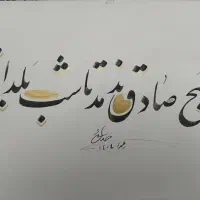 بح صادق ندمد تا شب یلدا